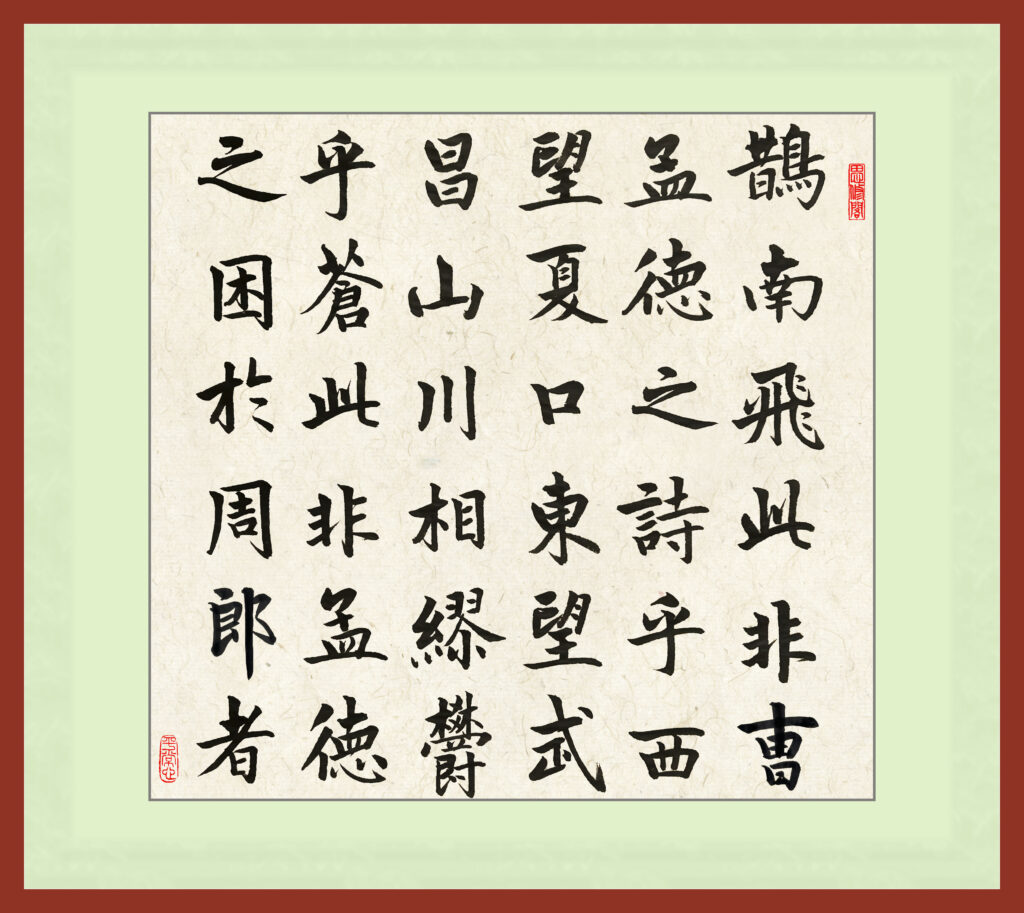 鵲南飛此非曺
孟德之詩乎西
望夏口東望武
昌山川相繆鬱
乎蒼此非孟德
之困於周郎者
平常心